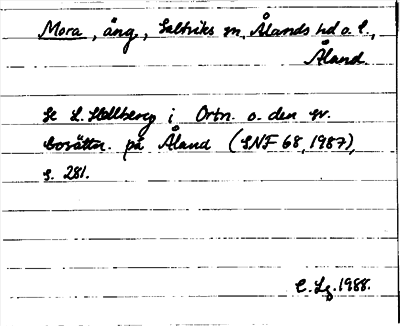 Mora, äng, Saltviks sn, Ålands hd o. l.,
Åland
Se L. Hellberg i Ortn. o. den sv.
bosättn. på Åland (SNF 68, 1987),
s. 281.
C. Lg. 1988.